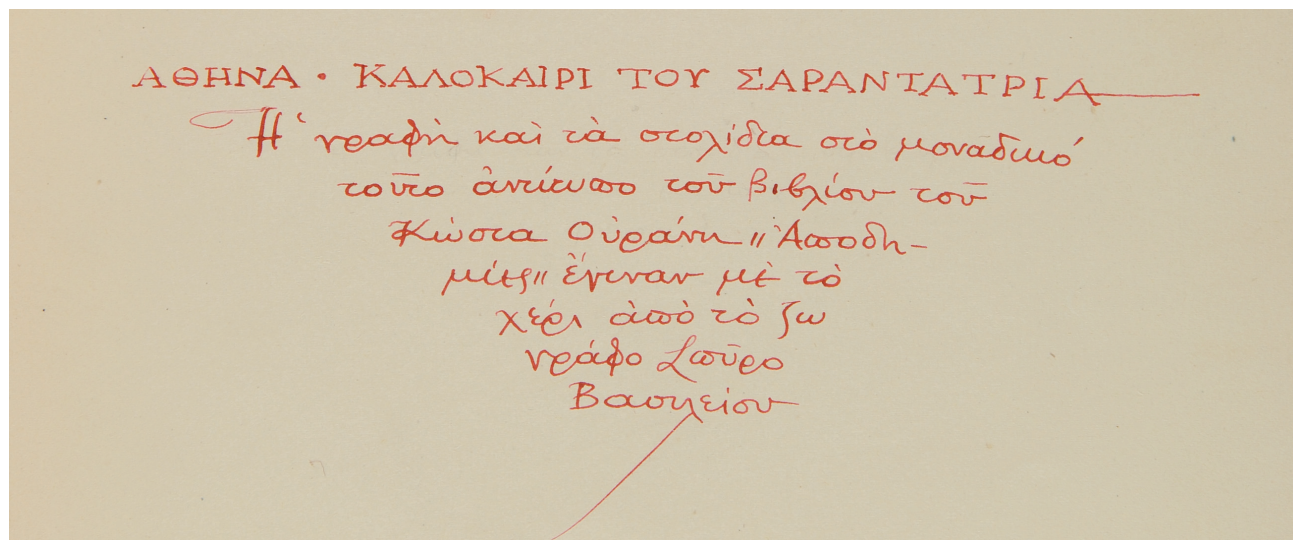 ΑΘΗΝΑ · ΚΑΛΟΚΑΙΡΙ ΤΟΥ ΣΑΡΑΝΤΑΤΡΙΑ
Ἡ γραφὴ καὶ τὰ στολίδια στὸ μοναδικό
τοῦτο ἀντίτυπο τοῦ βιβλίου τοῦ
Κώστα Οὐράνη "Ἀποδη-
μίες" ἔγιναν μὲ τὸ
χέρι ἀπὸ τὸ ζω
γράφο Σπῦρο
Βασιλείου